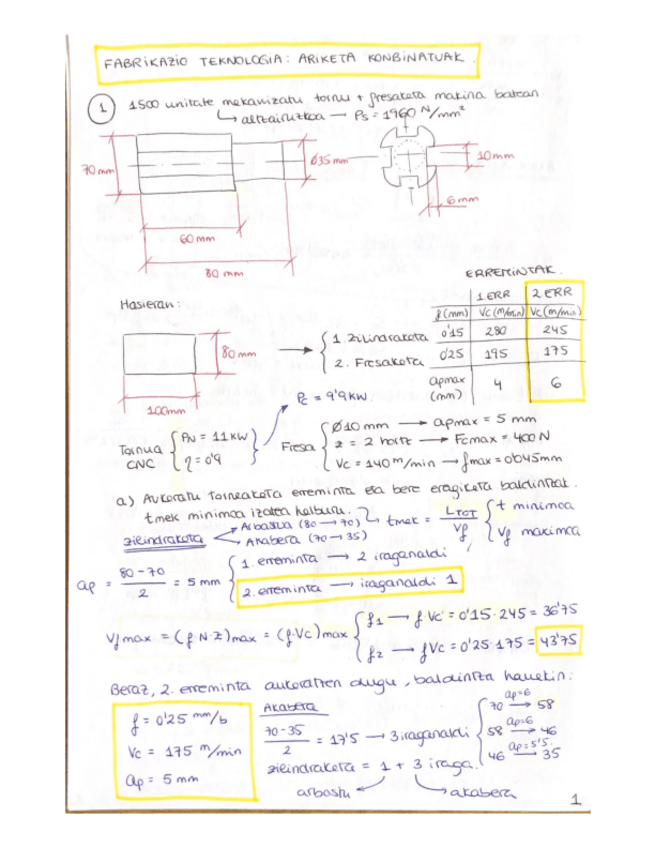 FABRIKAZIO TEKNOLOGIA: ARIKETA KONBINATUAK.
1 1500 unitate mekanizatu, tornu + fresaketa makina batean.
↳ altzairuzkoa → Ps = 1960 N/mm²
70 mm
Ø35 mm
10 mm
6 mm
60 mm
80 mm
ERREMINTAK.
1 ERR 2 ERR
f (mm) Vc (m/min) Vc (m/min)
0'15 280 245
0'25 195 175
apmax (mm) 4 6
Hasieran:
80 mm
100mm
→ { 1 Zilindraketa
2. Fresaketa
Pc = 9'9 KW
Tornua CNC { PN = 11 KW
η = 0'9
Fresa { Ø10 mm → apmax = 5 mm
z = 2 hortz → Fcmax = 400 N
Vc = 140 m/min → fmax = 0'045mm
a) Aukeratu torneaketa erreminta eta bere eragiketa baldintzak.
tmek minimoa izatea helburu.
zilindraketa
Arbastua (80 → 70)
Akabera (70 → 35)
tmek = LTOT / Vf { t minimoa
Vf maximoa
ap = 80 - 70 / 2 = 5 mm { 1. erreminta → 2 iraganaldi
2. erreminta → iraganaldi 1
Vf max = (f·N·z) max = (f·Vc) max { f1 → f·Vc = 0'15·245 = 36'75
f2 → f Vc = 0'25·175 = 43'75
Beraz, 2. erreminta aukeratzen dugu, baldintza hauekin:
f = 0'25 mm/b
Vc = 175 m/min
ap = 5 mm
Akabera
70-35 / 2 = 17'5 → 3 iraganaldi { 70 ap=6 → 58
58 ap=6 → 46
46 ap=5'5 → 35
zilindraketa = 1 + 3 iraga.
arbastu akabera
1